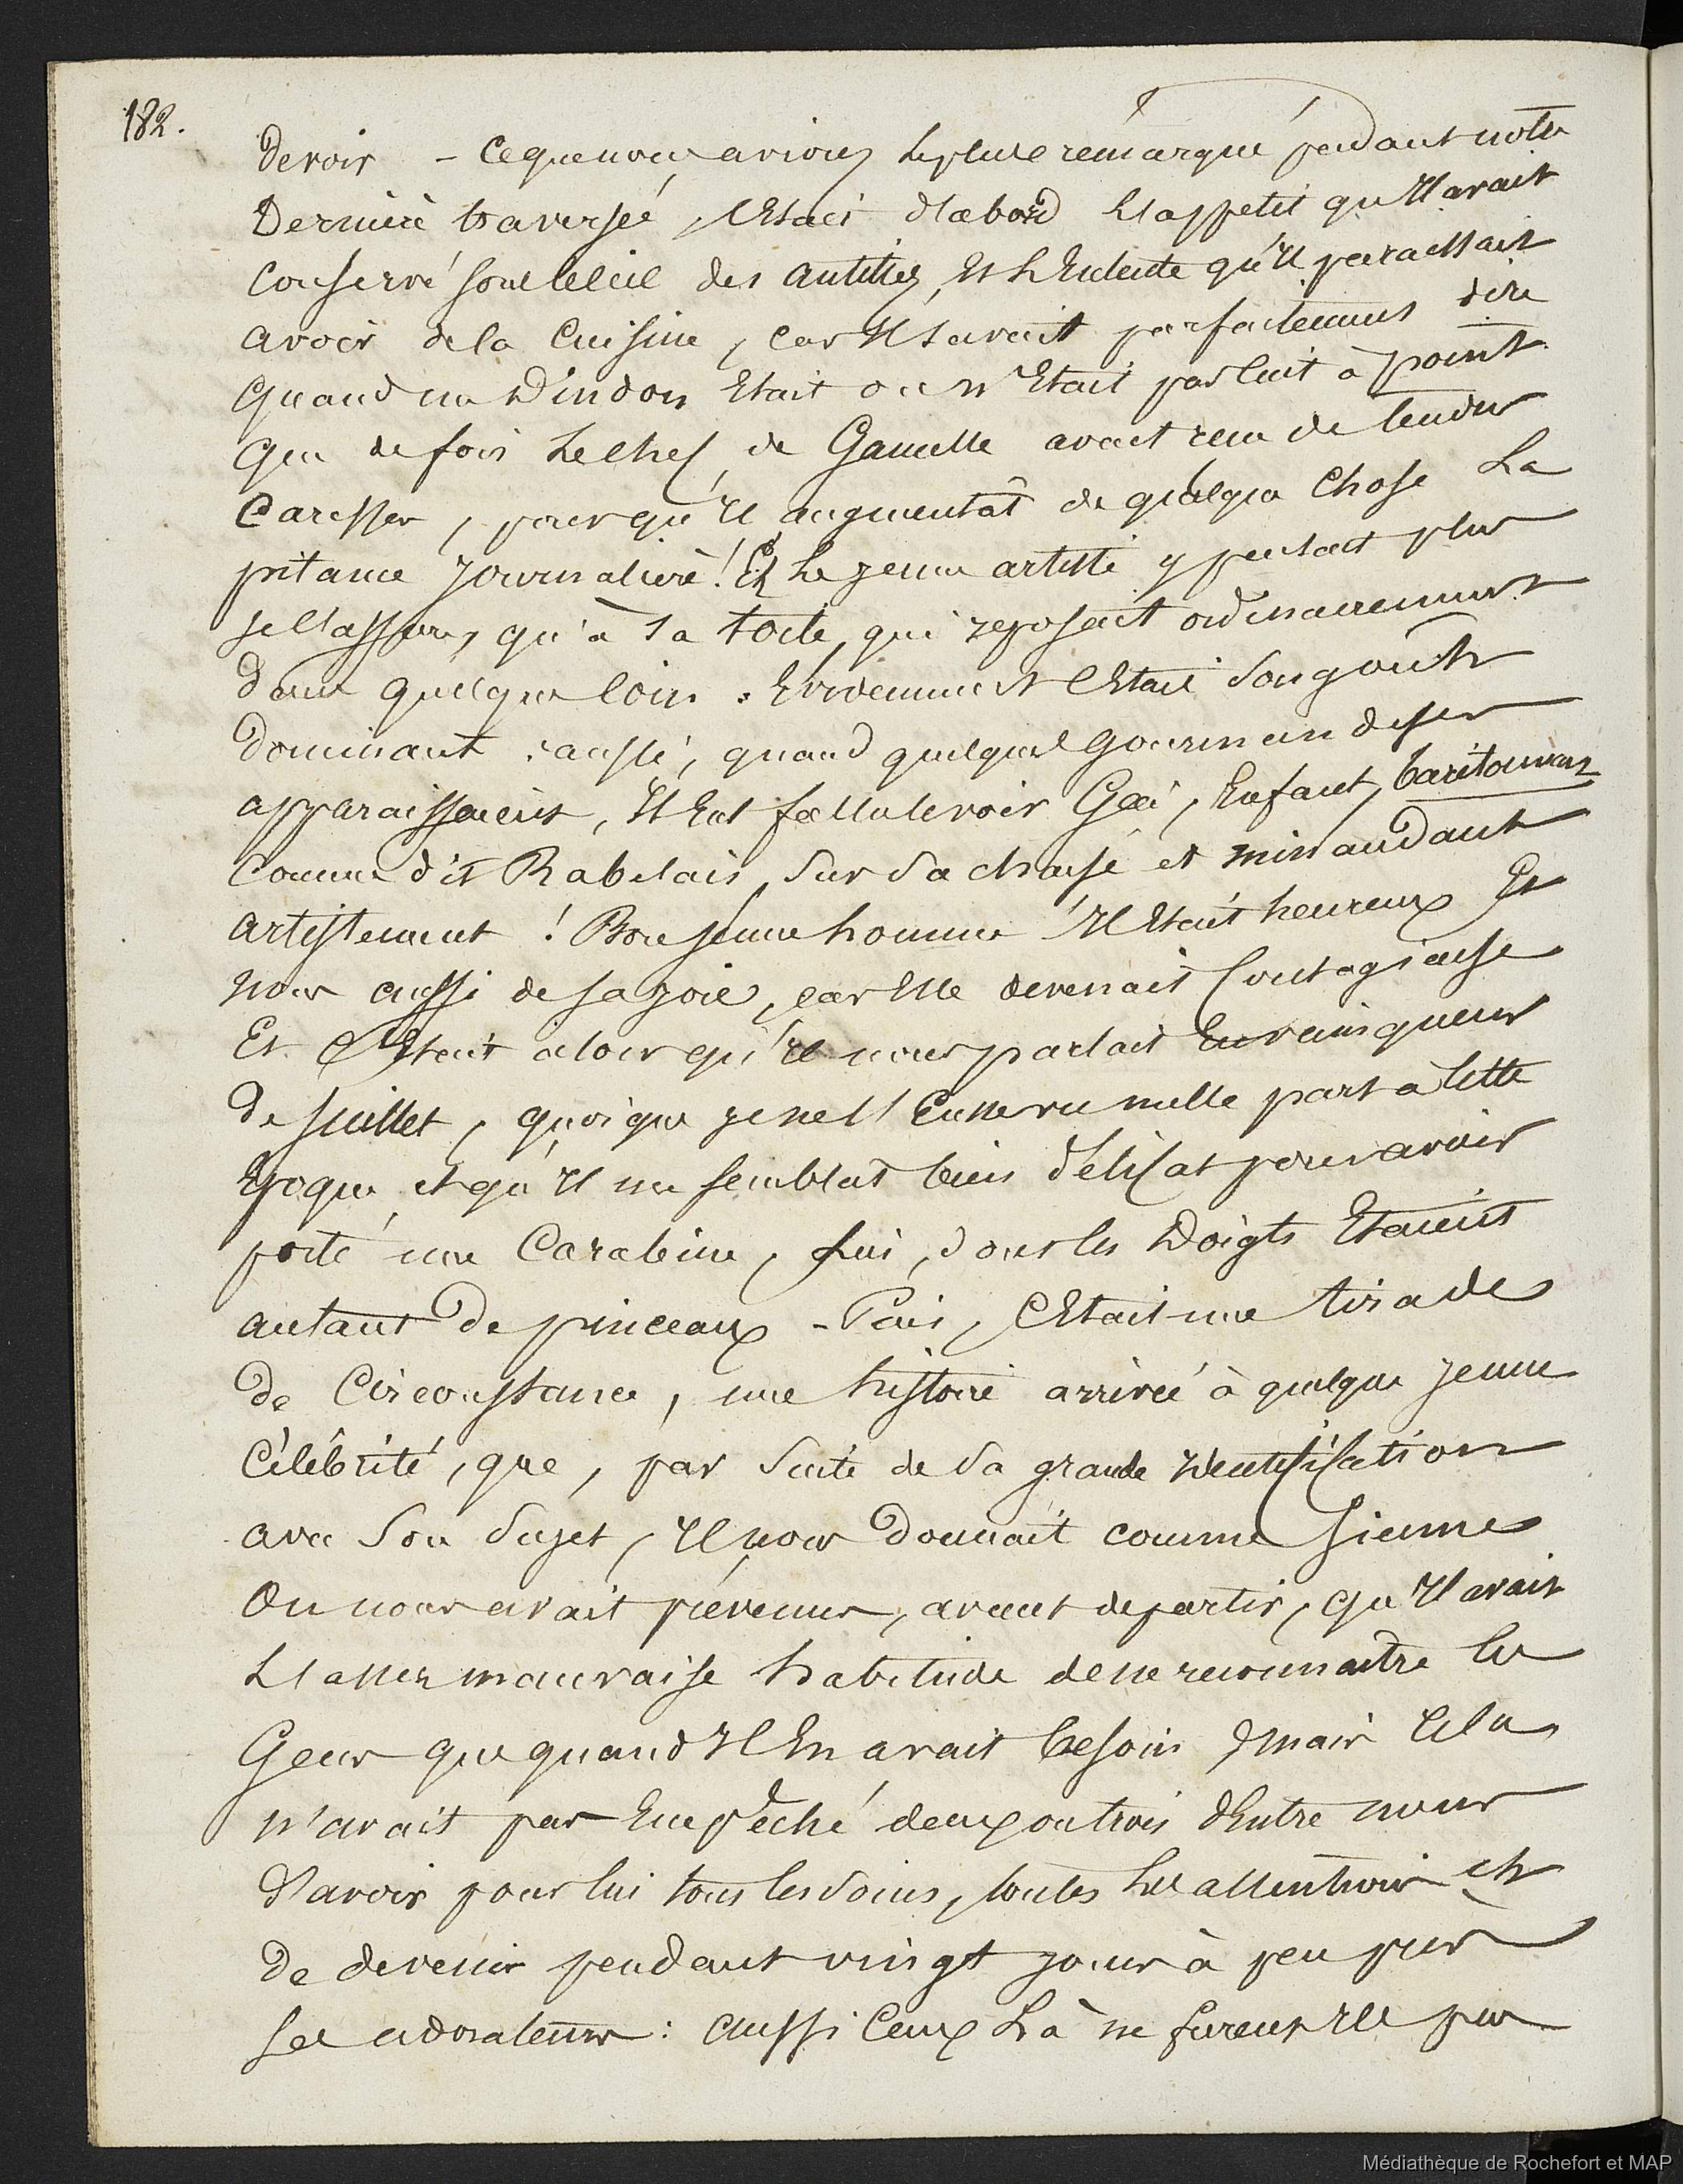 182.
devoir - Ce que nous avions le plus remarqué pendant notre
dernière traversée, c'était d'abord l'appetit qu'il avait
conservé sous le ciel des antilles, et l'entente qu'il paraissait
avoir de la cuisine, car il savait parfaitement dire
quand un dindon était ou n'était pas cuit à point
que de fois le chef de Gamelle avait reçu de tendres
caresses, pour qu'il augmentât de quelque chose la
pitance journalière! Et le jeune artiste y pensait plus
je l'assure, qu'à sa toile, qui reposait ordinairement
dans quelque coin. Evidemment c'était son goût
dominant. aussi, quand quelques gourmandises
apparaissaient, il eut fallu le voir Gai, Enfant, baritonnant
comme dit Rabelais, sur sa chaise et minaudant
artistement! Bon jeune homme il était heureux Et
nous aussi de sa joie, car elle devenait contagieuse
Et c'était alors qu'il nous parlait en vainqueur
de Juillet, quoique je ne l'eusse vu nulle part à cette
époque, et qu'il me semblât bien délicat pour avoir
porté une carabine, lui, dont les doigts étaient
autant de pinceaux - Puis, c'était une tirade
de circonstance, une histoire arrivée à quelque jeune
célébrité, que, par suite de sa grande identification
avec son sujet, il nous donnait comme sienne
On nous avait prévenus, avant de partir, qu'il avait
l'assez mauvaise habitude de ne reconnaître les
Gens que quand il en avait besoin, mais cela
n'avait pas empêché deux ou trois d'entre nous
d'avoir pour lui tous les soins, toutes les attentions et
de devenir pendant vingt jours à peu près
ses adorateurs: aussi ceux là ne furent ils pas
Médiathèque de Rochefort et MAP